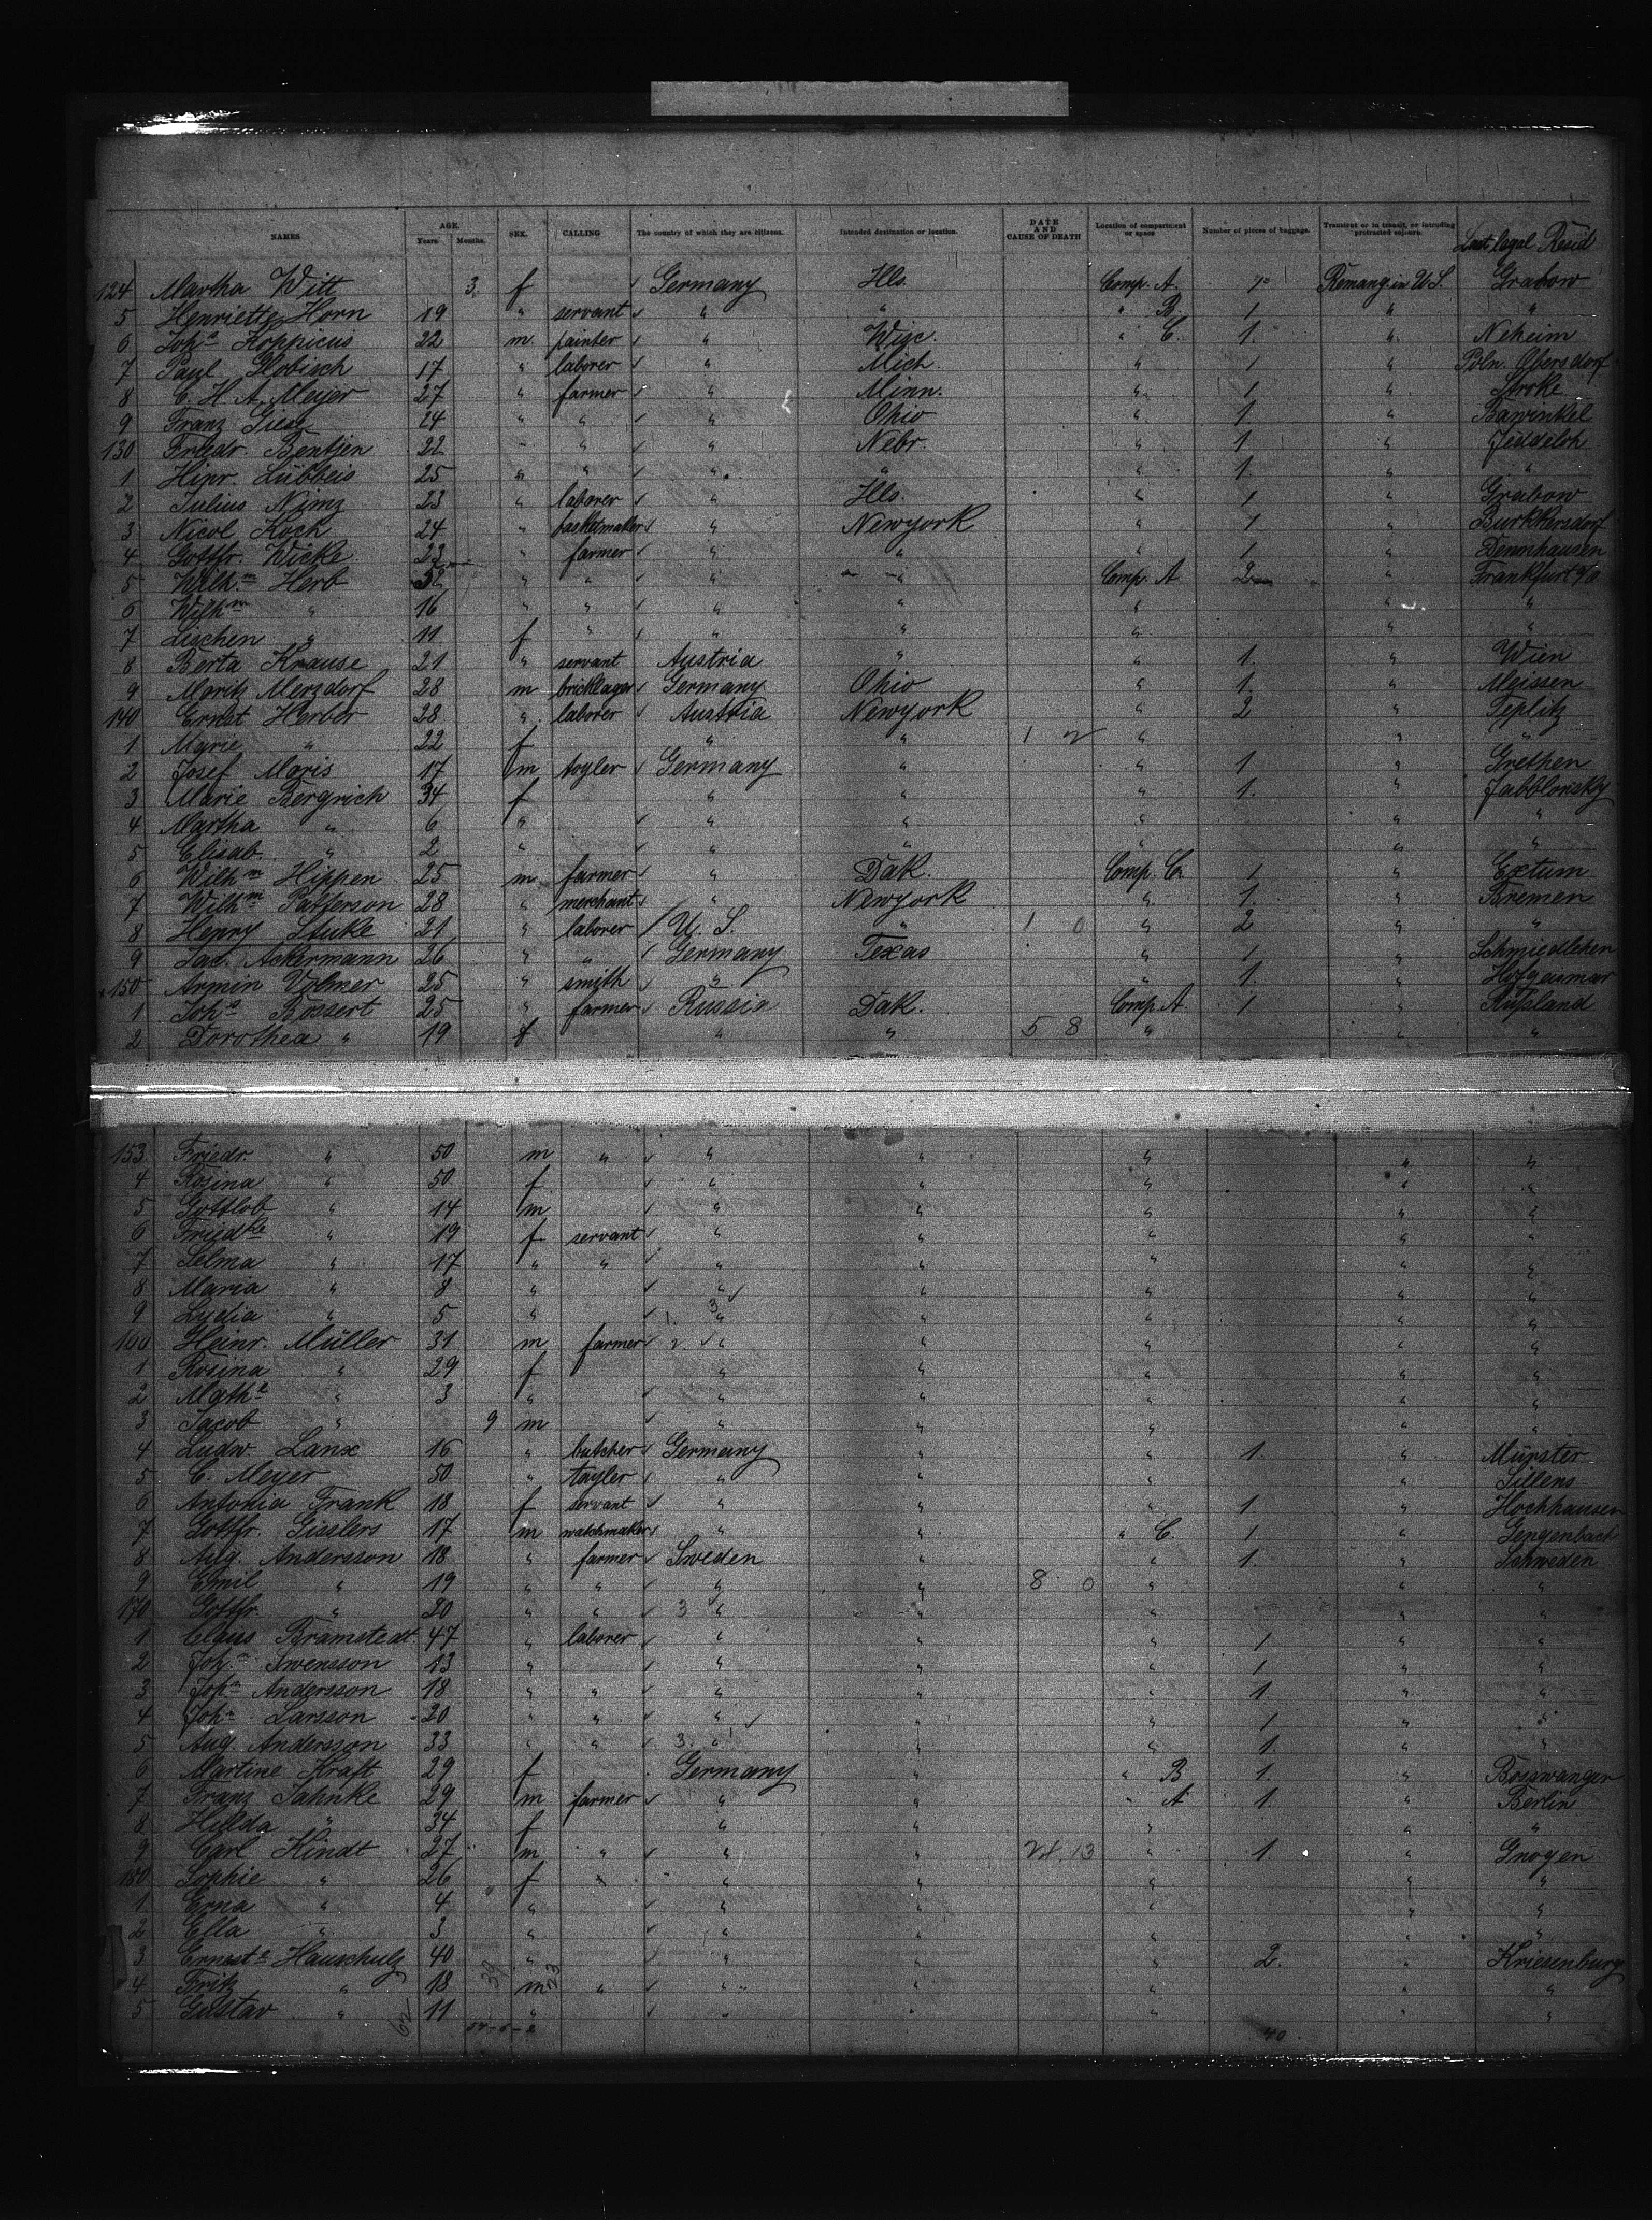 NAMES AGE. Years. Months. SEX. CALLING The country of which they are citizens. Intended destination or location. DATE AND CAUSE OF DEATH Location of compartment or space Number of pieces of baggage. Transient or in transit, or intending protracted sojourn. Last legal Resid
124 Martha Witt 3 f Germany Ills. Comp. A. 1 Remang in U.S. Grabow
5 Henriette Horn 19 " servant " " " B. 1 " "
6 Joh. Koppicus 22 m painter " Wisc. " C. 1. " Neheim
7 Paul Globisch 17 " laborer " Mich. " 1 " Poln. Obersdorf
8 C. H. A. Meyer 27 " farmer " Minn. " 1 "
9 Franz Giese 24 " " " Ohio " 1. " Bawinkel
130 Friedr. Bentjen 22 " " " Nebr. " 1 " Jeddeloh
1 Hinr. Lübbeis 25 " " " " " 1. " "
2 Julius Nimz 23 " laborer " Ills. " 1 " Grabow
3 Nicol Koch 24 " basketmaker " Newyork " 1 " Burkkersdorf
4 Gottfr. Wicke 23 " farmer " " " 1 " Dennhausen
5 Wilhm. Herb 32 " " " " Comp. A 2 Frankfurt a/o
6 Wilhm " 16 " " " " " " "
7 Lischen " 11 f " " " " " "
8 Berta Krause 21 " servant Austria " " 1. " Wien
9 Moritz Merzdorf 28 m bricklager Germany Ohio " 1. " Meissen
140 Ernst Herber 28 " laborer Austria Newyork " 2 " Teplitz
1 Marie " 22 f " " 1 2 " " "
2 Josef Moris 17 m toyler Germany " " 1 " Grethen
3 Marie Bergrich 34 f " " " 1. " Jabblonsky
4 Martha " 6 " " " " " "
5 Elisab. " 2 " " " " " "
6 Wilhm Hippen 25 m farmer " Dak. Comp. C. 1 " Extum
7 Wilhm Patterson 28 " merchant " Newyork " 1. " Bremen
8 Henry Stuke 21 " laborer U. S. " 1 0 " 2 " "
9 Jac. Ackermann 26 " " Germany Texas " 1 " Schmiedlehen
150 Armin Volmer 25 " smith " " 1. " Hofgeismar
1 Joh. Bossert 25 " farmer Russia Dak. Comp. A. 1 " Rußland
2 Dorothea " 19 f " " 5 8 " " "
153 Friedr. " 50 m " " " " " "
4 Rosina " 50 f " " " " "
5 Gottlob " 14 m " " " " "
6 Friedke " 19 f servant " " " " "
7 Selma " 17 " " " " " " "
8 Maria " 8 " " " " " "
9 Lydia " 5 " 1. 3 " " " " "
160 Heinr. Müller 31 m farmer 2. " " " " "
1 Rosina " 29 f " " " " "
2 Mathe " 3 " " " " " "
3 Jacob " 9 m " " " " "
4 Ludw. Lanx 16 " butcher Germany " " 1. " Münster
5 C. Meyer 50 " tayler " " " " Sillens
6 Antonia Frank 18 f servant " " " 1. " Hochhausen
7 Gottfr. Gisslers 17 m watchmaker " " " C. 1 " Gengenbach
8 Aug. Andersson 18 " farmer Sweden " " 1. " Schweden
9 Emil " 19 " " " " 8 0 " " "
170 Gottfr. " 20 " " 3 " " " " "
1 Claus Bramstedt 47 " laborer " " " 1 " "
2 Joh. Swensson 13 " " " " 1 " "
3 Joh. Andersson 18 " " " " " 1 " "
4 Joh. Larsson 20 " " " " " 1 " "
5 Aug. Andersson 33 " " 3. " " " 1. " "
6 Martine Kraft 29 f Germany " " B 1. "
7 Franz Jahnke 29 m farmer " " " A 1. " Berlin
8 Hulda " 34 f " " " " "
9 Carl Kindt 27 m " " " 24. 13 " 1. " Gnoyen
180 Sophie " 26 f " " " " "
1 Erna " 4 " " " " " "
2 Ella " 3 " " " " " "
3 Erneste Hauschulz 40 " " " " 2. " Kriesenburg
4 Fritz " 18 39 m 23 " " " " " "
5 Gustav " 11 " " " " " "
62
40